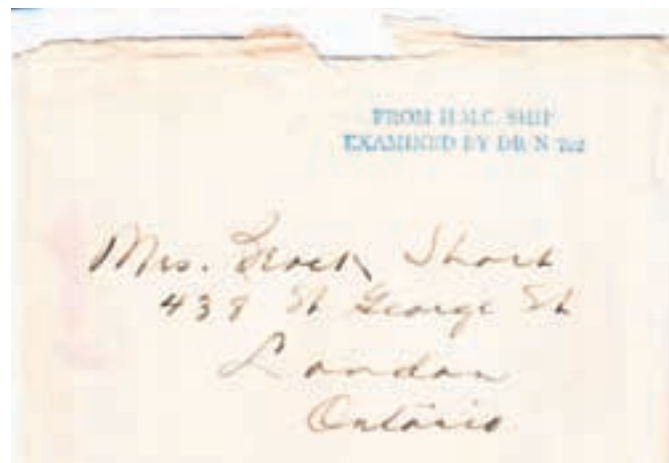 FROM H.M.C. SHIP
EXAMINED BY DB/N
Mrs. Short
439 St George St
London
Ontario